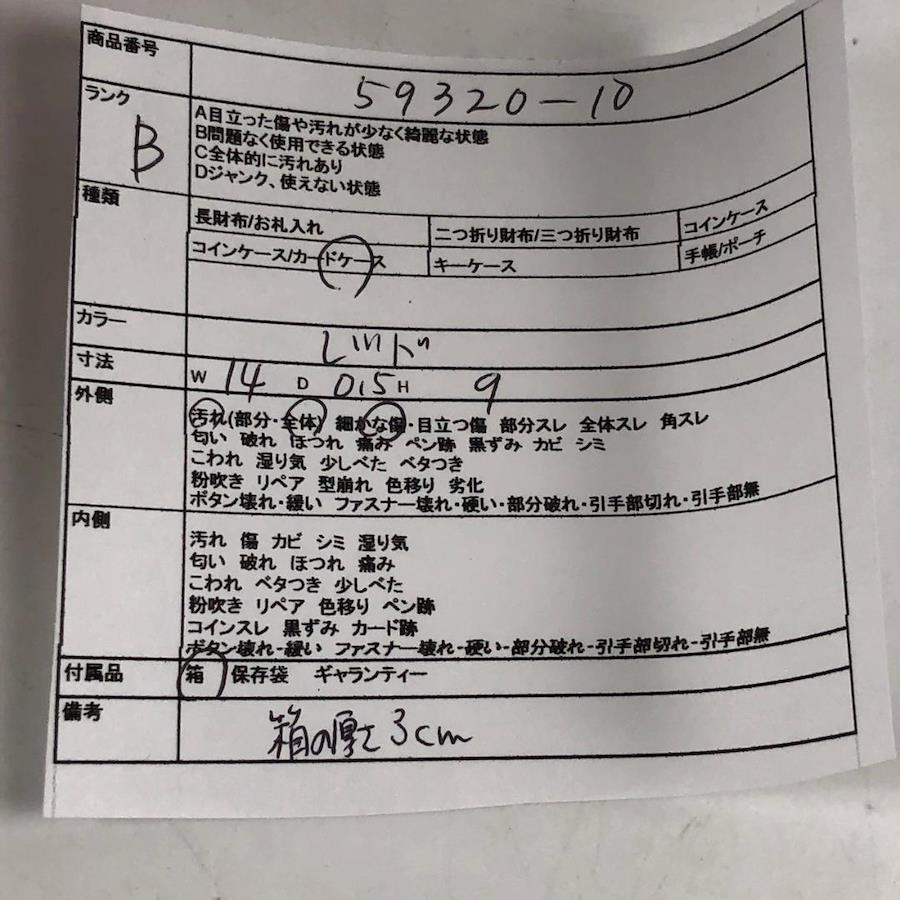 商品番号
59320-10
ランク
B
A目立った傷や汚れが少なく綺麗な状態
B問題なく使用できる状態
C全体的に汚れあり
Dジャンク、使えない状態
種類
長財布/お札入れ 二つ折り財布/三つ折り財布 コインケース
コインケース/カードケース キーケース 手帳/ポーチ
カラー
レッド
寸法
W 14 D 0.5 H 9
外側
汚れ(部分・全体) 細かな傷・目立つ傷 部分スレ 全体スレ 角スレ
匂い 破れ ほつれ 痛み ペン跡 黒ずみ カビ シミ
こわれ 湿り気 少しべた ベタつき
粉吹き リペア 型崩れ 色移り 劣化
ボタン壊れ・緩い ファスナー壊れ・硬い・部分破れ・引手部切れ・引手部無
内側
汚れ 傷 カビ シミ 湿り気
匂い 破れ ほつれ 痛み
こわれ ベタつき 少しべた
粉吹き リペア 色移り ペン跡
コインスレ 黒ずみ カード跡
ボタン壊れ・緩い ファスナー壊れ・硬い・部分破れ・引手部切れ・引手部無
付属品
箱 保存袋 ギャランティー
備考
箱の厚さ3cm